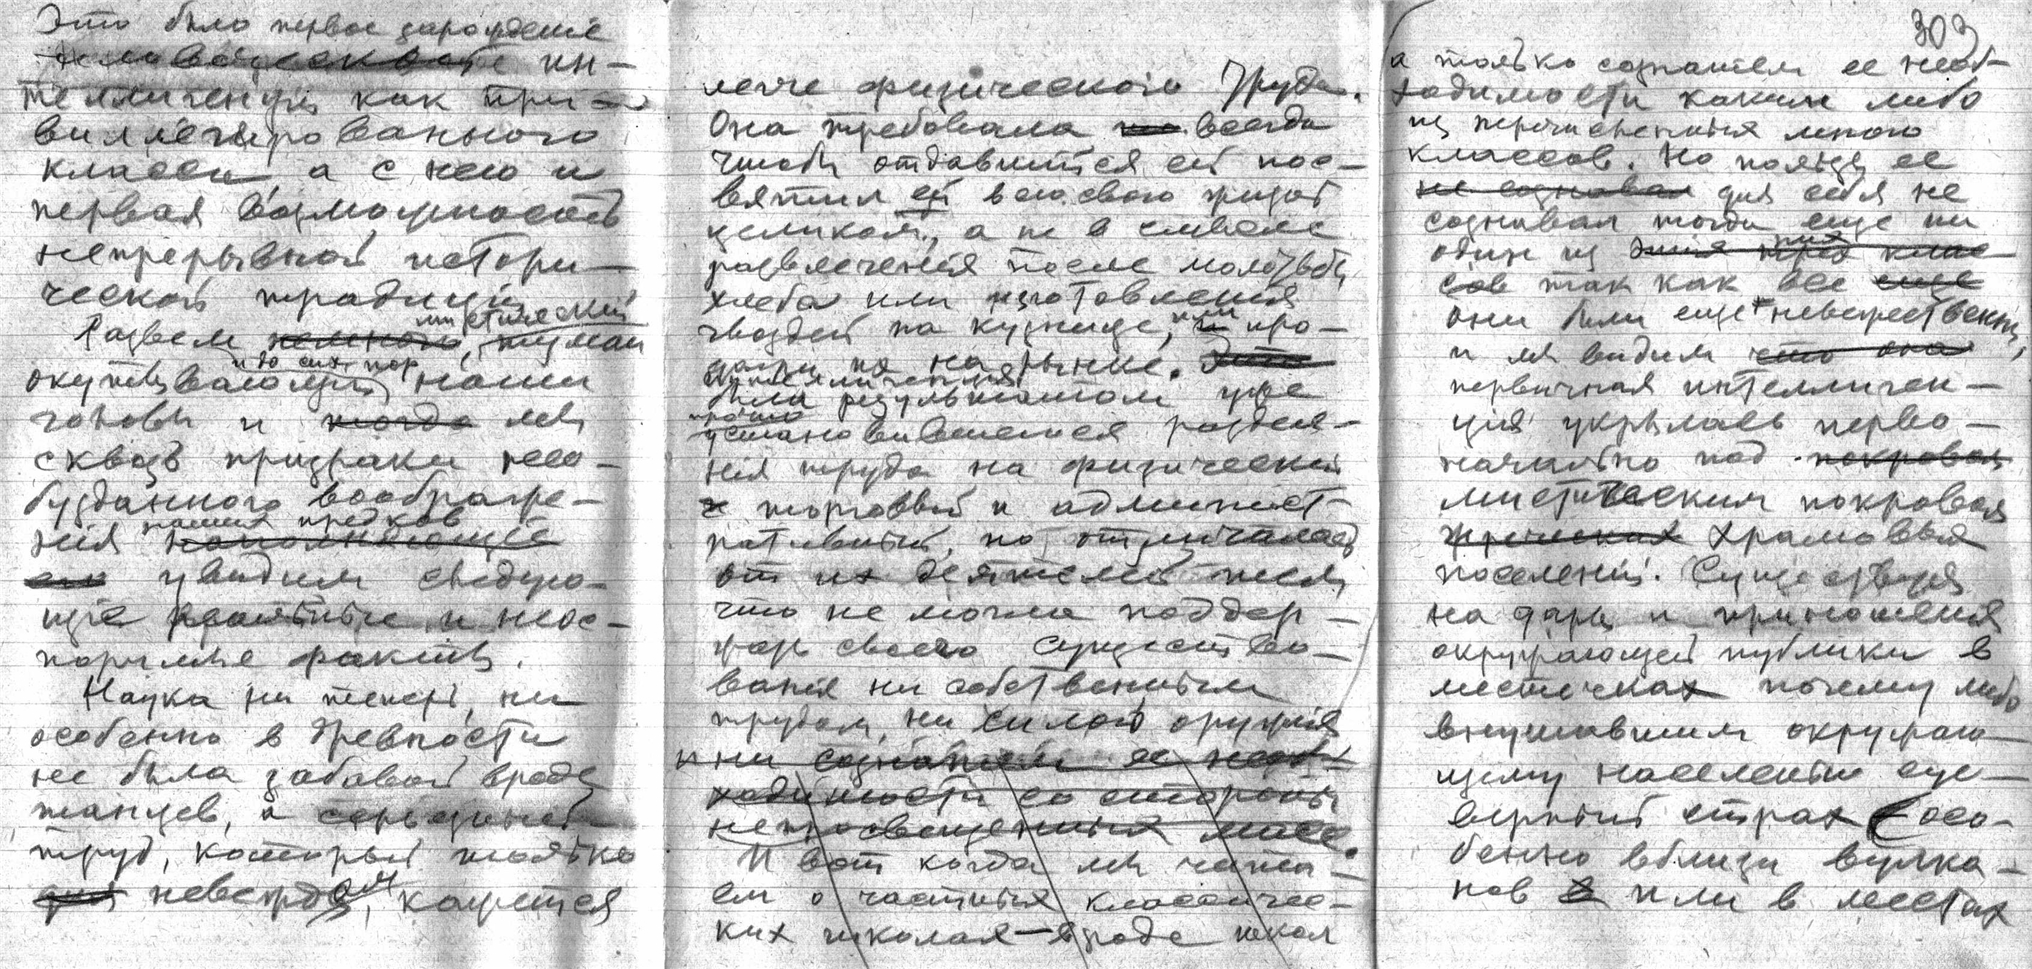 Это было первое зарождение
человеческой ин-
теллигенции как при-
виллегированного
класса, а с нею и
первая возможность
непрерывной истори-
ческой традиции
мистический
Развеем немного, туман
и до сих пор
окутывающий наши
головы и тогда мы
сквозь призраки нео-
бузданного воображе-
наших предков
ния наполняющие
его увидим следую-
щие реальные и неос-
поримые факты.
Наука ни теперь, ни
особенно в древности
не была забавой вроде
танцев, а серьезный
труд, который только
для невежды, кажется
легче физического труда.
Она требовала всегда
чтобы отдавшийся ей пос-
вятил ей всю свою жизнь
целиком, а не в смысле
развлечения после молотьбы
хлеба или изготовления
гвоздей на кузнице, или про-
дажи их на рынке. Эта
интеллигенция
была результатом уже
прочно
установившегося разделе-
ния труда на физический
и торговый и админист-
ративный, но отличалась
от их деятелей тем,
что не могла поддер-
жать своего существо-
вания ни собственным
трудом, ни силою оружия
и ни сознанием ее необ-
ходимости со стороны
непросвещенных масс.
И вот когда мы чита-
ем о частных классичес-
ких школах вроде школ
303
а только сознанием ее необ-
ходимости каким либо
из перечисленных мною
классов. Но пользы ее
не сознавал для себя не
сознавал тогда еще ни
них
один из этих трех клас-
сов так как все еще
они были еще невежественны,
и мы видим что она
первичная интеллиген-
ция укрылась перво-
начально под покровом
мистическим покровом
жреческих храмовых
поселений. Существуя
на дары и приношения
окружающей публики в
местечках почему либо
внушавшим окружаю-
щему населению суе-
верный страх (осо-
бенно вблизи вулка-
нов в или в местах